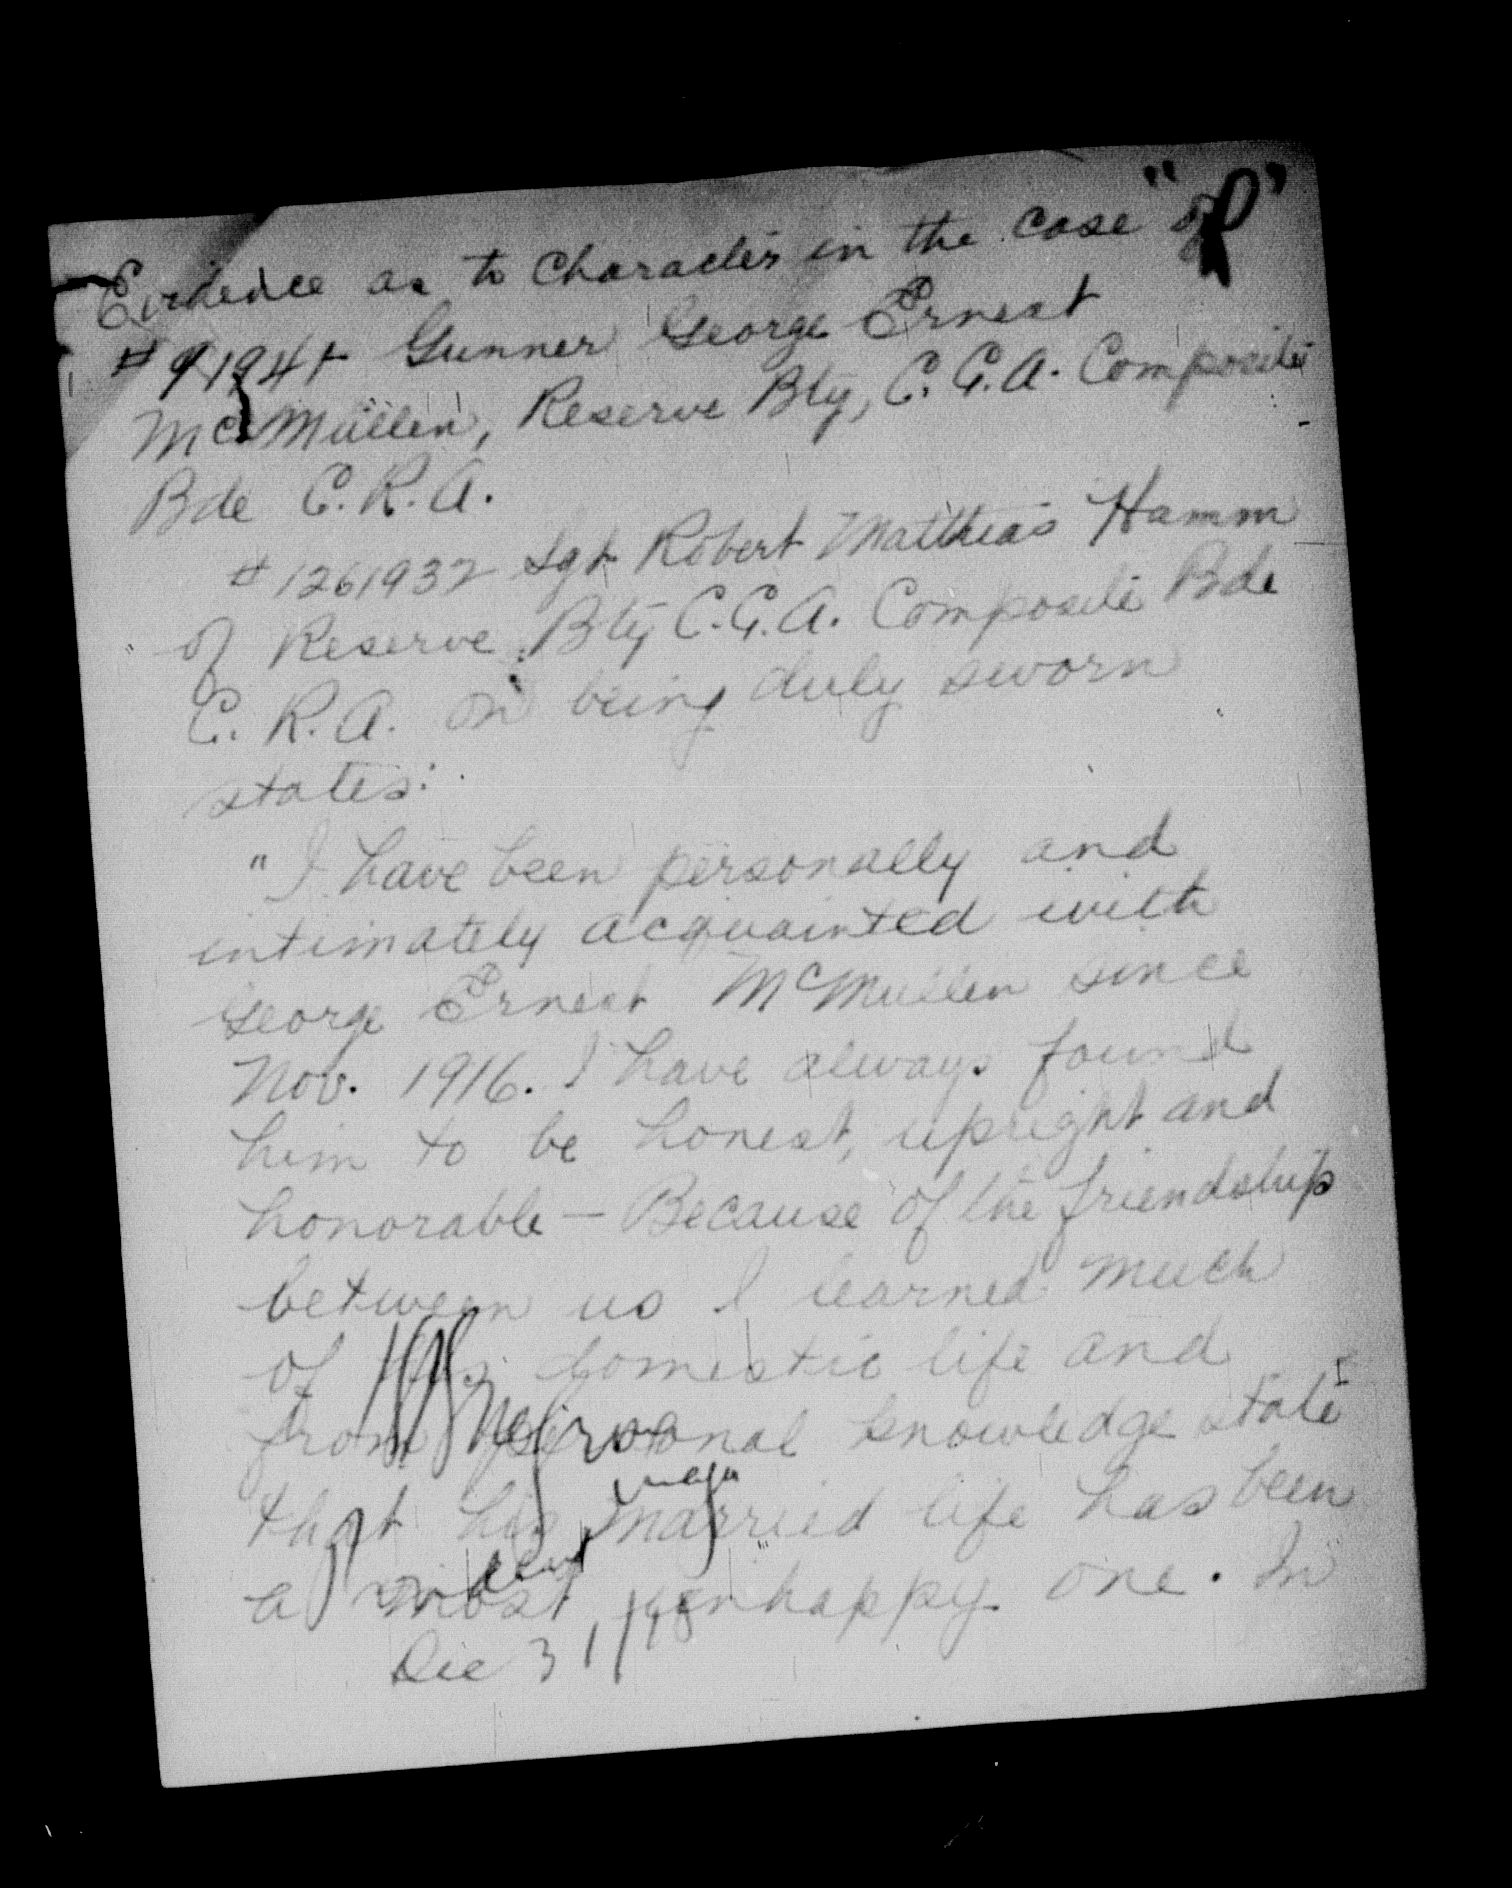 Evidence as to Character in the case "of"
Gunner George Ernest
McMullen, Reserve Bty, C.G.A. Composite
Bde C.R.A.
#1261932 Sgt Robert Matthias Hamm
of Reserve Bty C.G.A. Composite Bde
C.R.A. on being duly sworn
states:
"I have been personally and
intimately acquainted with
George Ernest McMullen since
Nov. 1916. I have always found
him to be honest, upright and
honorable — Because of the friendship
between us I learned much
of his domestic life and
from personal knowledge state
that his married life has been
a most unhappy one. In
Major
President
Dec 31/18